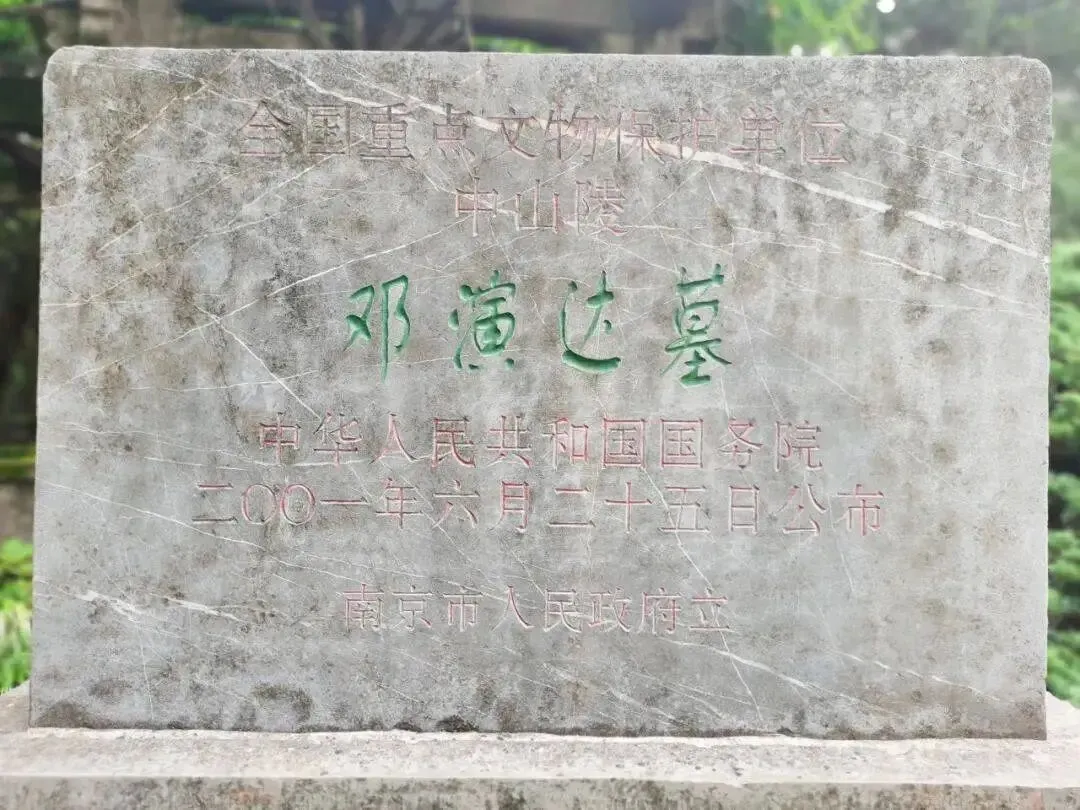 全国重点文物保护单位
中山陵
邓演达墓
中华人民共和国国务院
二〇〇一年六月二十五日公布
南京市人民政府立